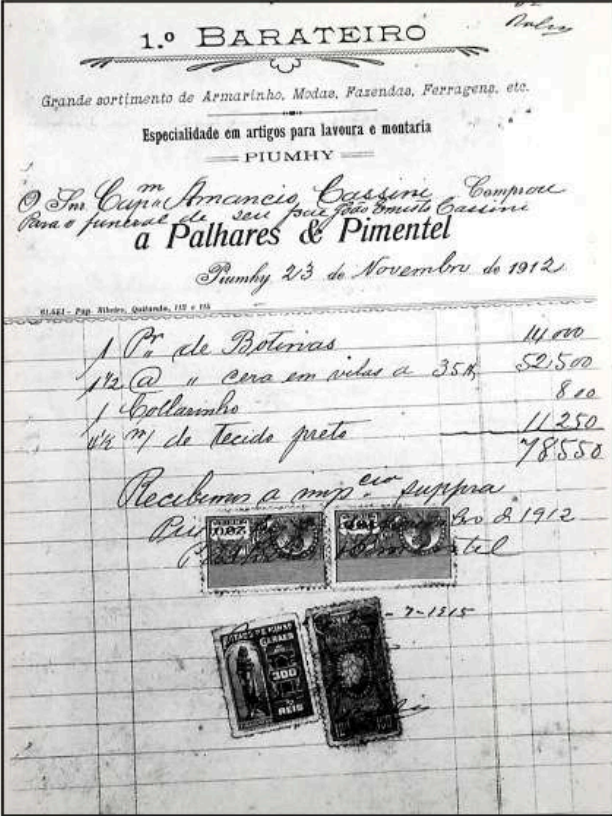 1.º BARATEIRO
Grande sortimento de Armarinho, Modas, Fazendas, Ferragens, etc.
Especialidade em artigos para lavoura e montaria
PIUMHY
O Snr. Cap.m Amancio Cassini Comprou
Para o funeral de seu pae João Ernesto Cassini
a Palhares & Pimentel
Piumhy 23 de Novembro de 1912
61.451 - Pap. Ribeiro, Quitanda,
1 Pr. de Botinas 14 000
1 1/2 @ " cera em vélas a 35$ 52.500
1 Collarinho 800
4 1/2 m/ de tecido preto 11 250
78550
Recebemos a imp.cia suppra
de 1912
ESTADO DE MINAS
GERAES
300
REIS
-7-1915